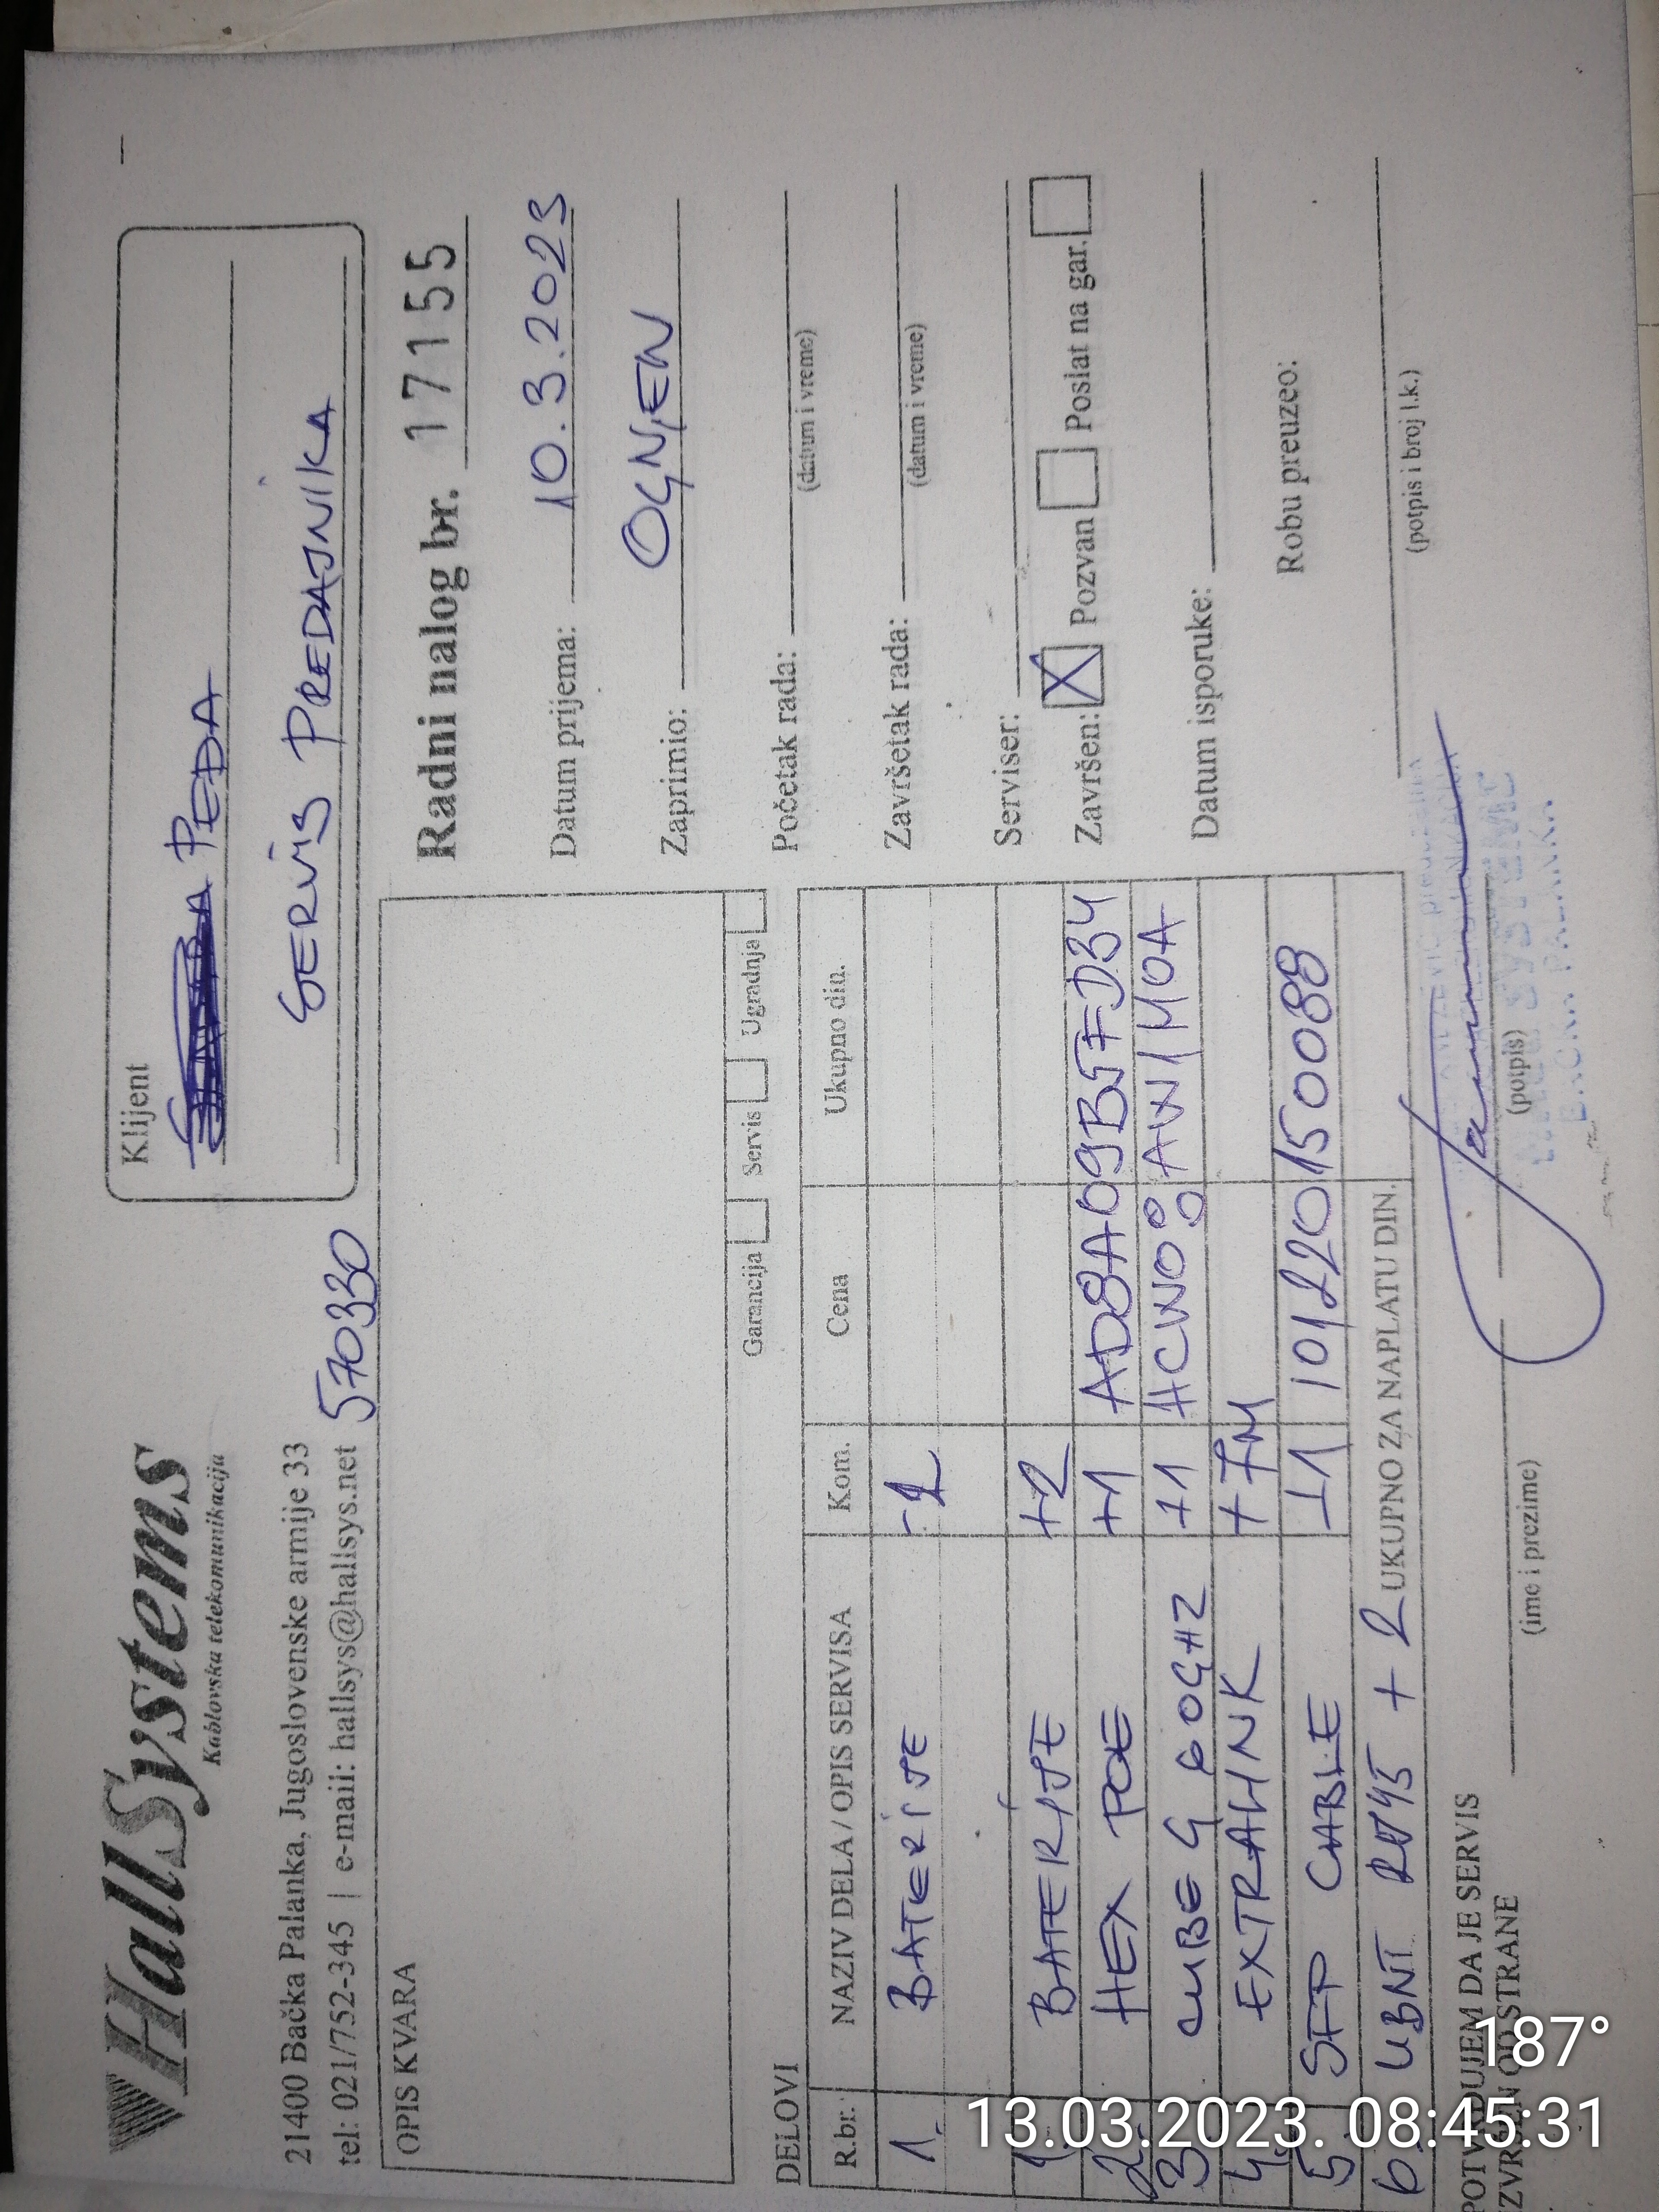 HallSystems
Kablovska telekomunikacija
21400 Bačka Palanka, Jugoslovenske armije 33
tel: 021/752-345 | e-mail: hallsys@hallsys.net
570330
Klijent
PEĐA
SERVIS PREDAJNIKA
OPIS KVARA
Garancija Servis Ugradnja
Radni nalog br. 17155
Datum prijema: 10.3.2023
Zaprimio: OGNJEN
Početak rada:
(datum i vreme)
Završetak rada:
(datum i vreme)
Serviser:
Završen: X Pozvan Poslat na gar.
Datum isporuke:
Robu preuzeo:
(potpis i broj l.k.)
DELOVI
R.br. NAZIV DELA / OPIS SERVISA Kom. Cena Ukupno din.
1. BATERIJE
1. BATERIJE +2
2. HEX POE +1 AD8A09B5FD34
3 CUBE G 60GHZ +1 HCW08
4. EXTRALINK +7M
5. SFP CABLE 101220150088
6. UBNT RJ45 + 2 UKUPNO ZA NAPLATU DIN.
POTVRDUJEM DA JE SERVIS
IZVRŠEN OD STRANE
(ime i prezime) (potpis)
187°
13.03.2023. 08:45:31